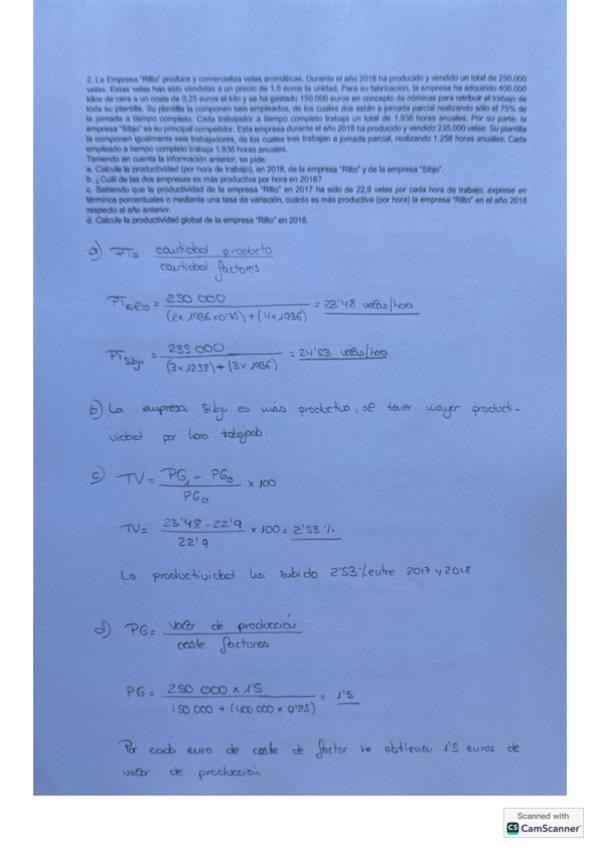 2. La Empresa "Rilto" produce y comercializa velas aromáticas. Durante el año 2018 ha producido y vendido un total de 250.000
velas. Estas velas han sido vendidas a un precio de 1,5 euros la unidad. Para su fabricación, la empresa ha adquirido 400.000
kilos de cera a un coste de 0,25 euros el kilo y se ha gastado 150.000 euros en concepto de nóminas para retribuir el trabajo de
toda su plantilla. Su plantilla la componen seis empleados, de los cuales dos están a jornada parcial realizando sólo el 75% de
la jornada a tiempo completo. Cada trabajador a tiempo completo trabaja un total de 1.936 horas anuales. Por su parte, la
empresa "Sibjo" es su principal competidor. Esta empresa durante el año 2018 ha producido y vendido 235.000 velas. Su plantilla
la componen igualmente seis trabajadores, de los cuales tres trabajan a jornada parcial, realizando 1.258 horas anuales. Cada
empleado a tiempo completo trabaja 1.936 horas anuales.
Teniendo en cuenta la información anterior, se pide:
a. Calcule la productividad (por hora de trabajo), en 2018, de la empresa "Rilto" y de la empresa "Sibjo".
b. ¿Cuál de las dos empresas es más productiva por hora en 2018?
c. Sabiendo que la productividad de la empresa "Rilto" en 2017 ha sido de 22,9 velas por cada hora de trabajo, exprese en
términos porcentuales o mediante una tasa de variación, cuánto es más productiva (por hora) la empresa "Rilto" en el año 2018
respecto al año anterior.
d. Calcule la productividad global de la empresa "Rilto" en 2018.
a) PT = cantidad producto
cantidad factores
PT Rilto = 250 000 = 23'48 velas/hora
(2 x 1936 x 0'75) + (4 x 1936)
PT Sibjo = 235 000 = 24'53 velas/hora
(3 x 1258) + (3 x 1936)
b) La empresa Sibjo es más productiva, al tener mayor producti-
vidad por hora trabajada.
c) TV = PG1 - PG0 x 100
PG0
TV = 23'48 - 22'9 x 100 = 2'53 %
22'9
La productividad ha subido 2'53 % entre 2017 y 2018
d) PG = valor de producción
coste factores
PG = 250 000 x 1'5 = 1'5
150 000 + (400 000 x 0'25)
Por cada euro de coste de factor se obtienen 1'5 euros de
valor de producción
Scanned with
CS CamScanner